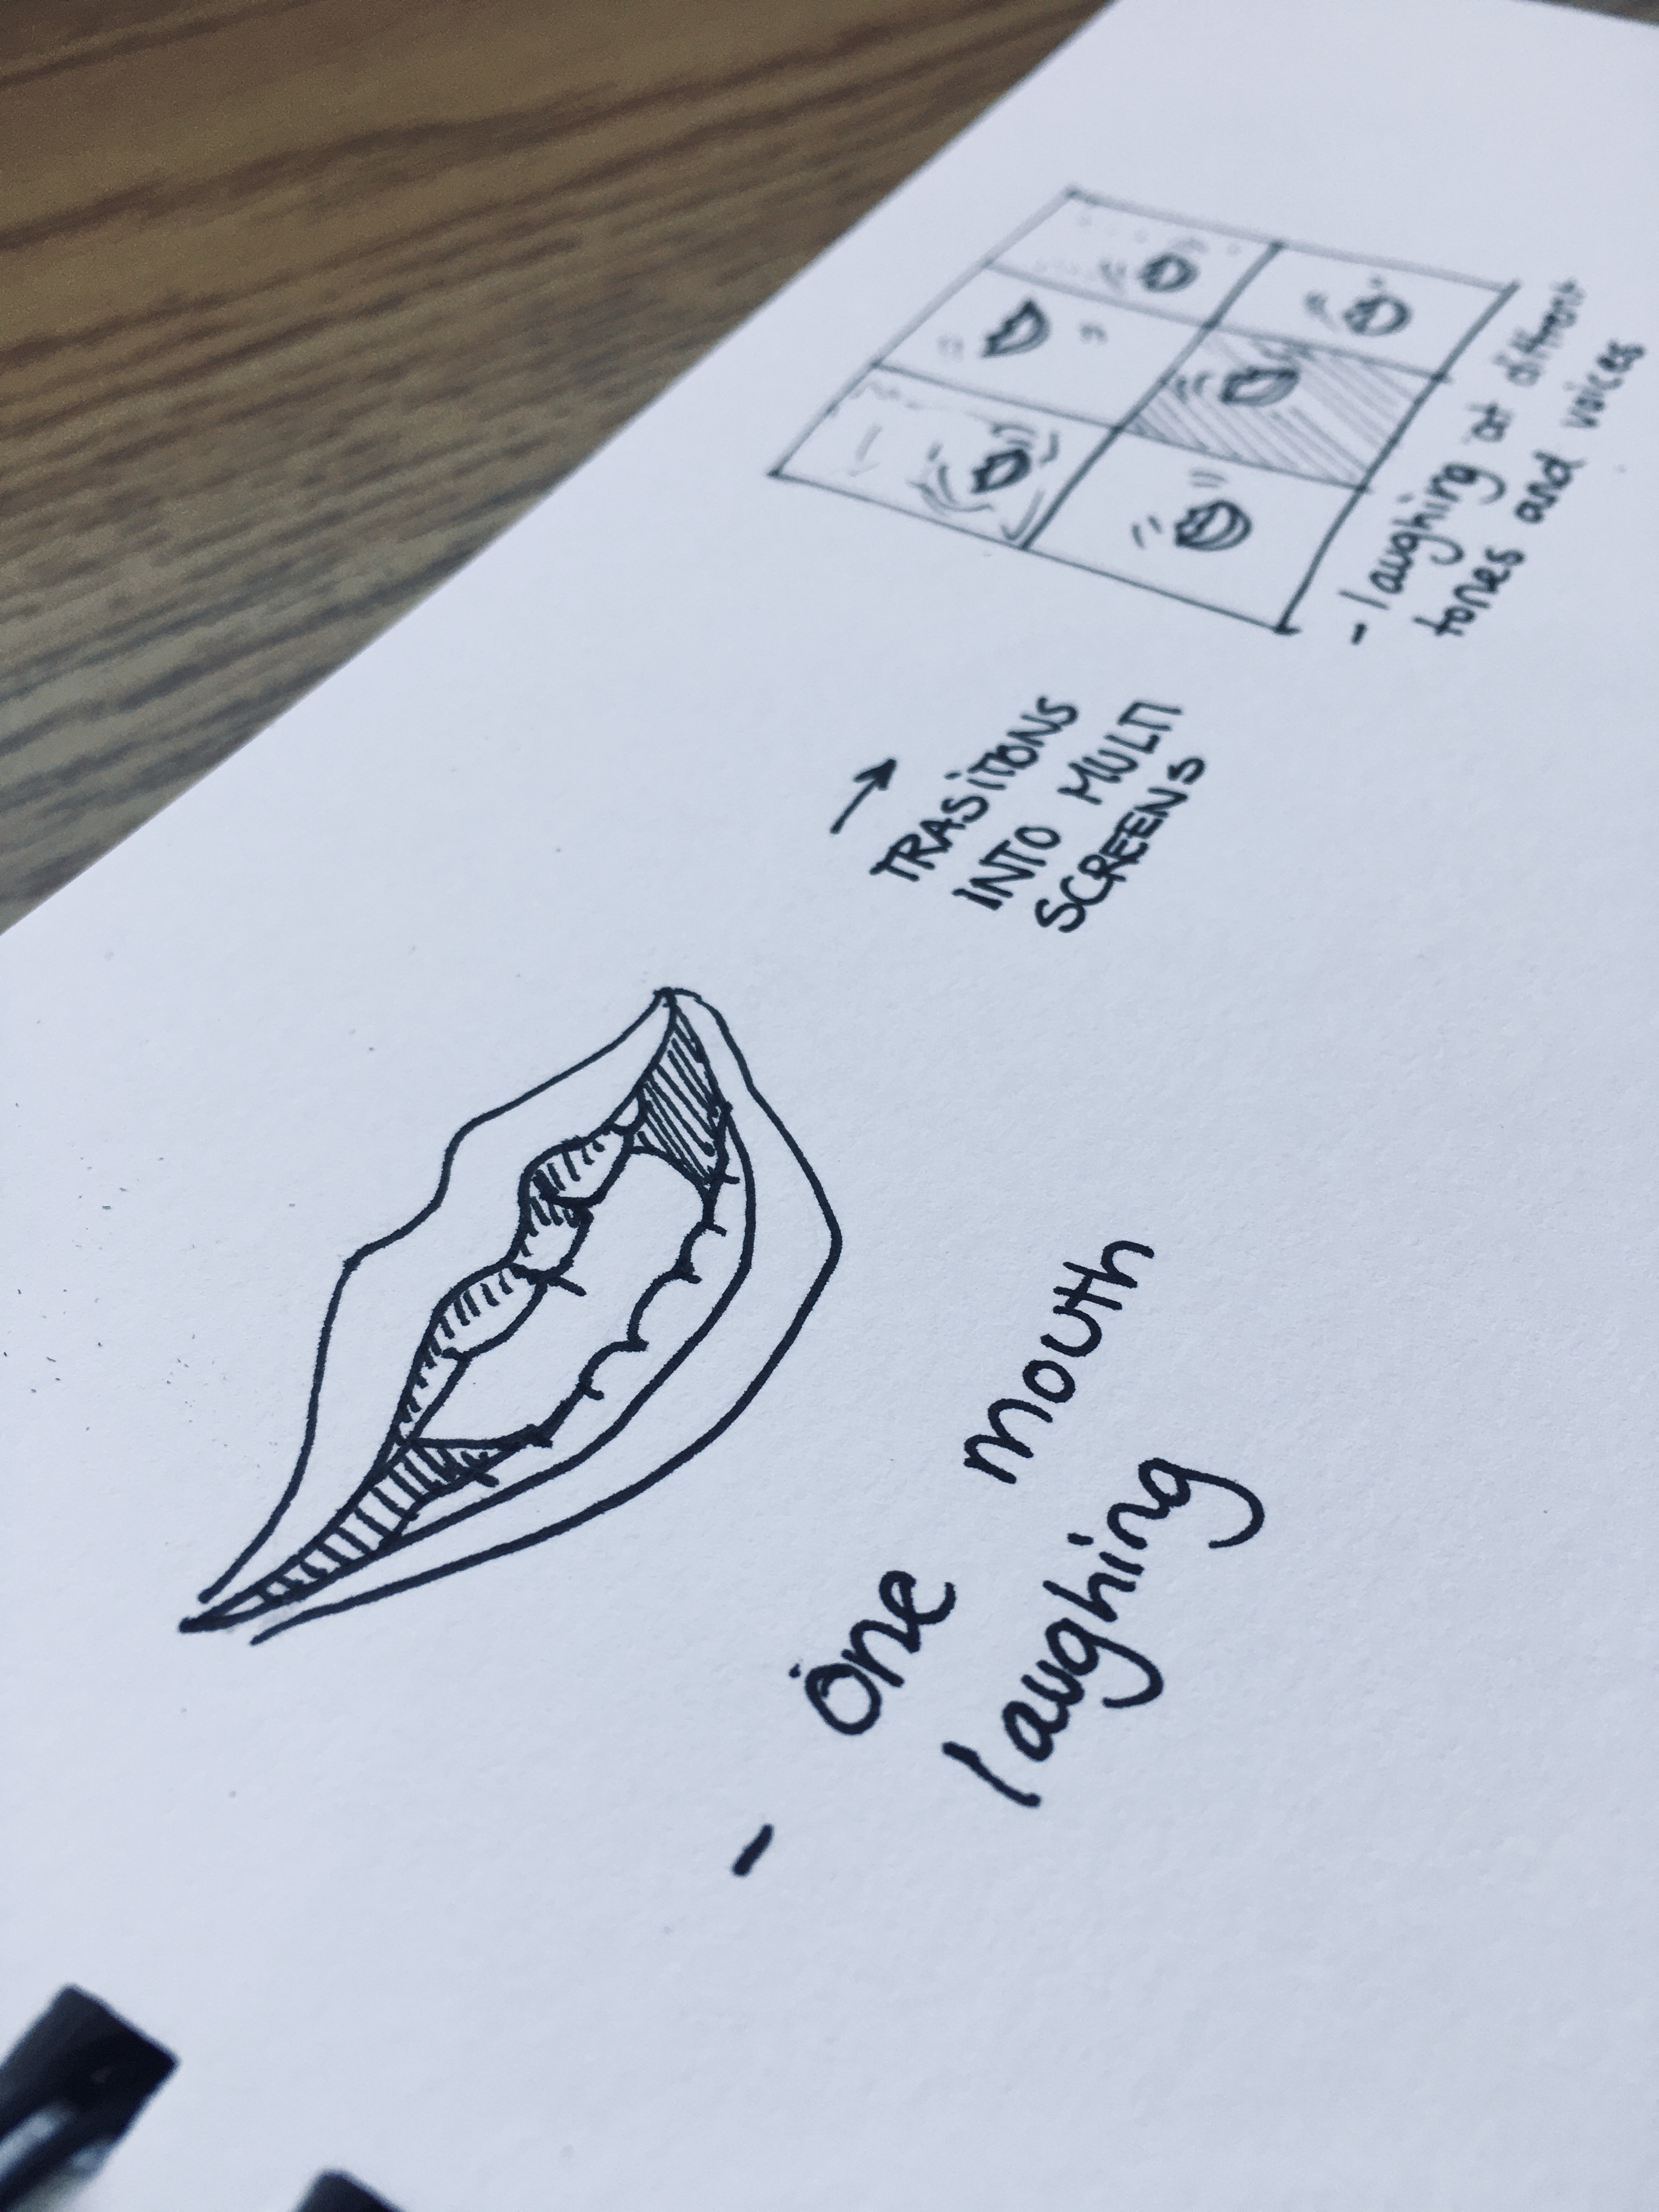 - one mouth
laughing
→
TRASITIONS
INTO MULTI
SCREENS
- laughing at different
tones and voices